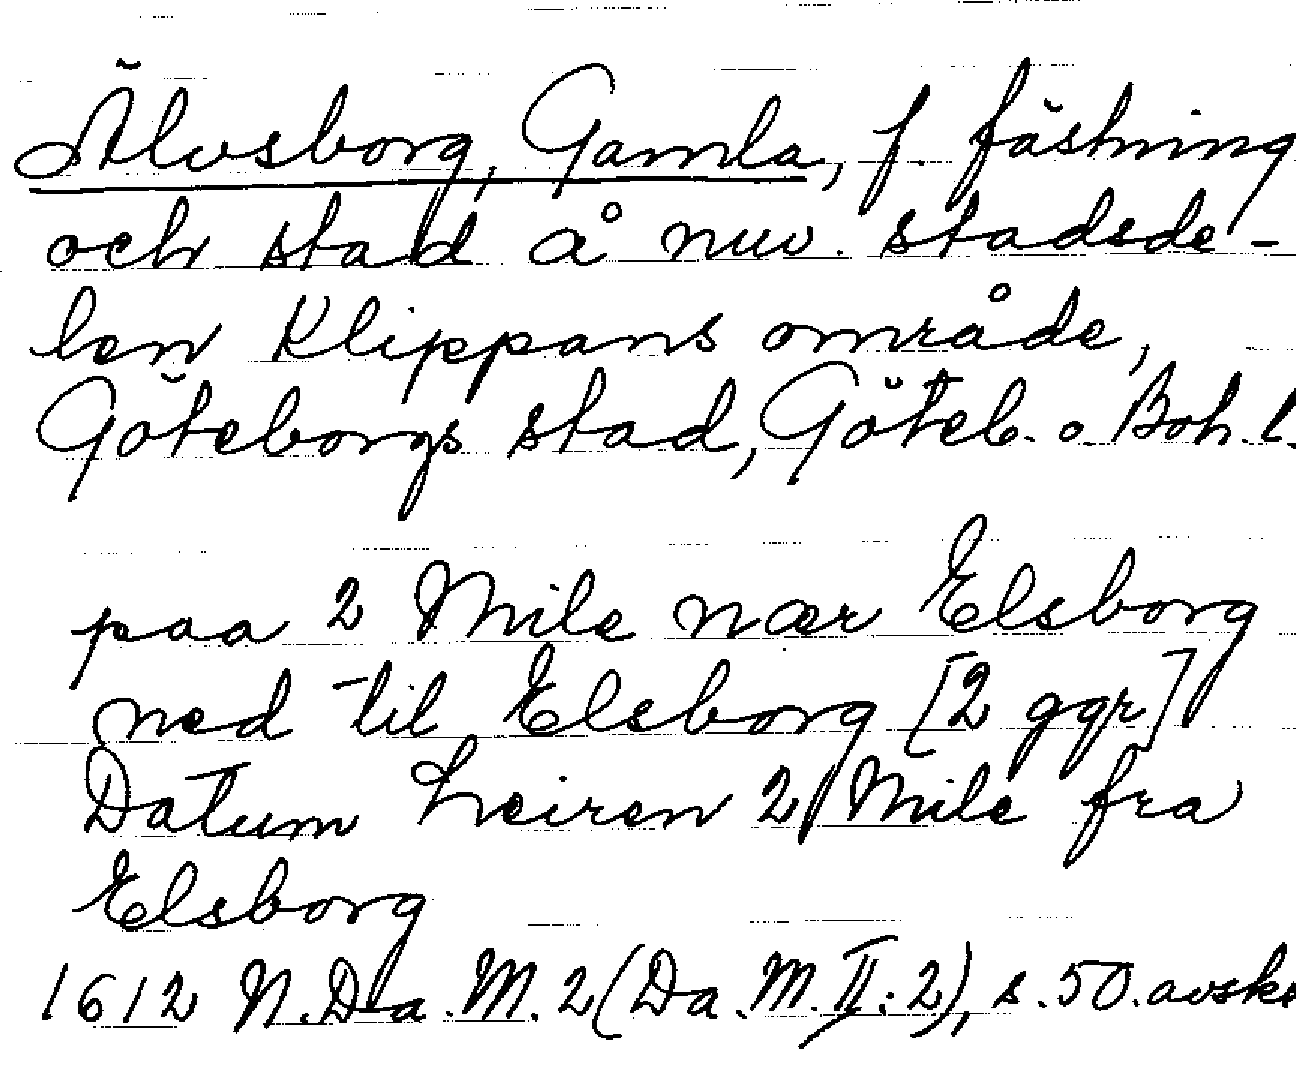 Älvsborg, Gamla, f. fästning
och stad å nuv. stadsde-
len Klippans område,
Göteborgs stad, Göteb. o. Boh. l.
paa 2 Mile nær Elsborg
ned til Elsborg [2 ggr]
Datum Leiren 2 Mile fra
Elsborg
1612 N. Da. M. 2 (Da. M. II: 2), s. 50. avskr